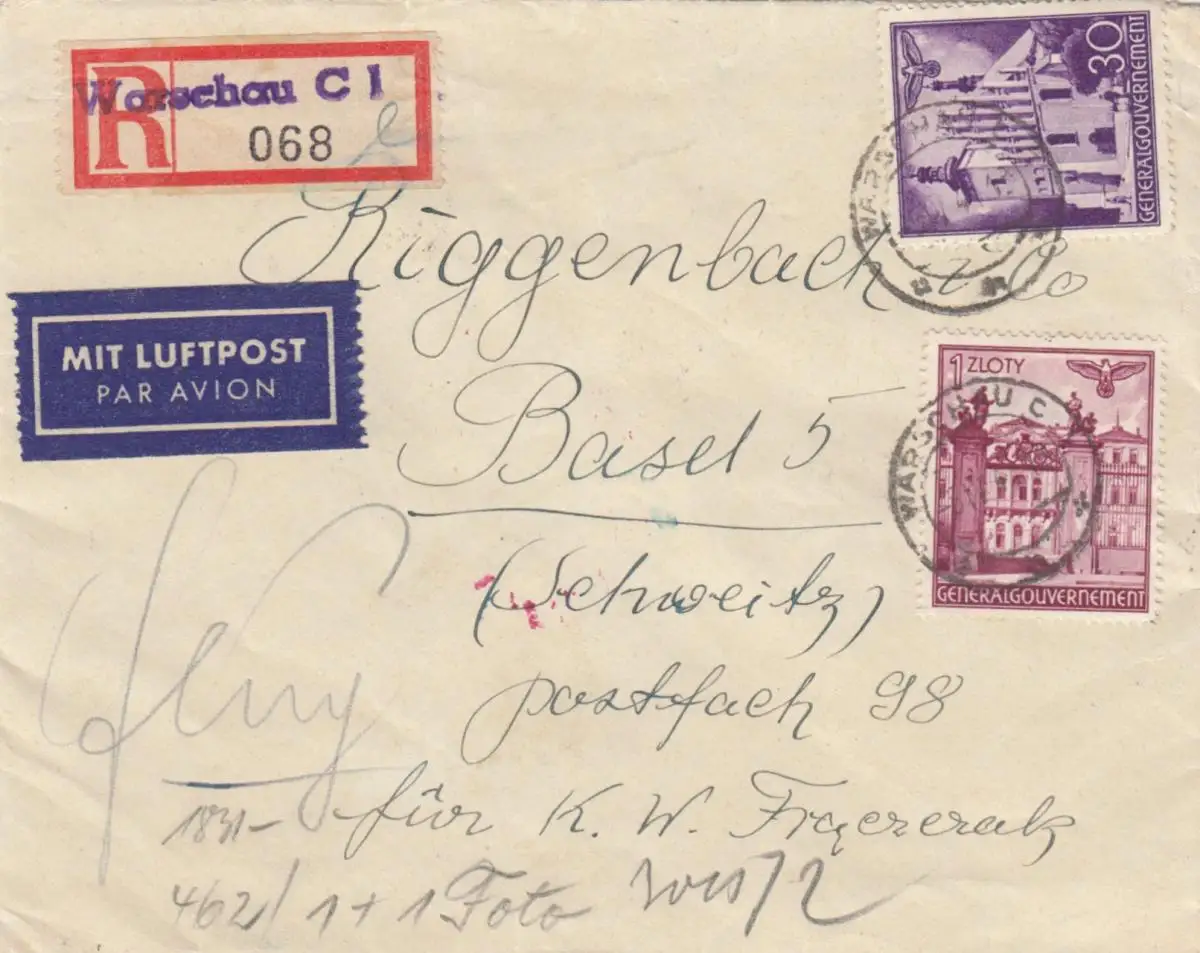 Warschau C 1
R
068
30
GENERALGOUVERNEMENT
WARSCHAU C
Riggenbach & Co
MIT LUFTPOST
PAR AVION
1 ZLOTY
WARSCHAU C
GENERALGOUVERNEMENT
Basel 5
(Schweitz)
postfach 98
für K. W.
462/ 1+1 Foto